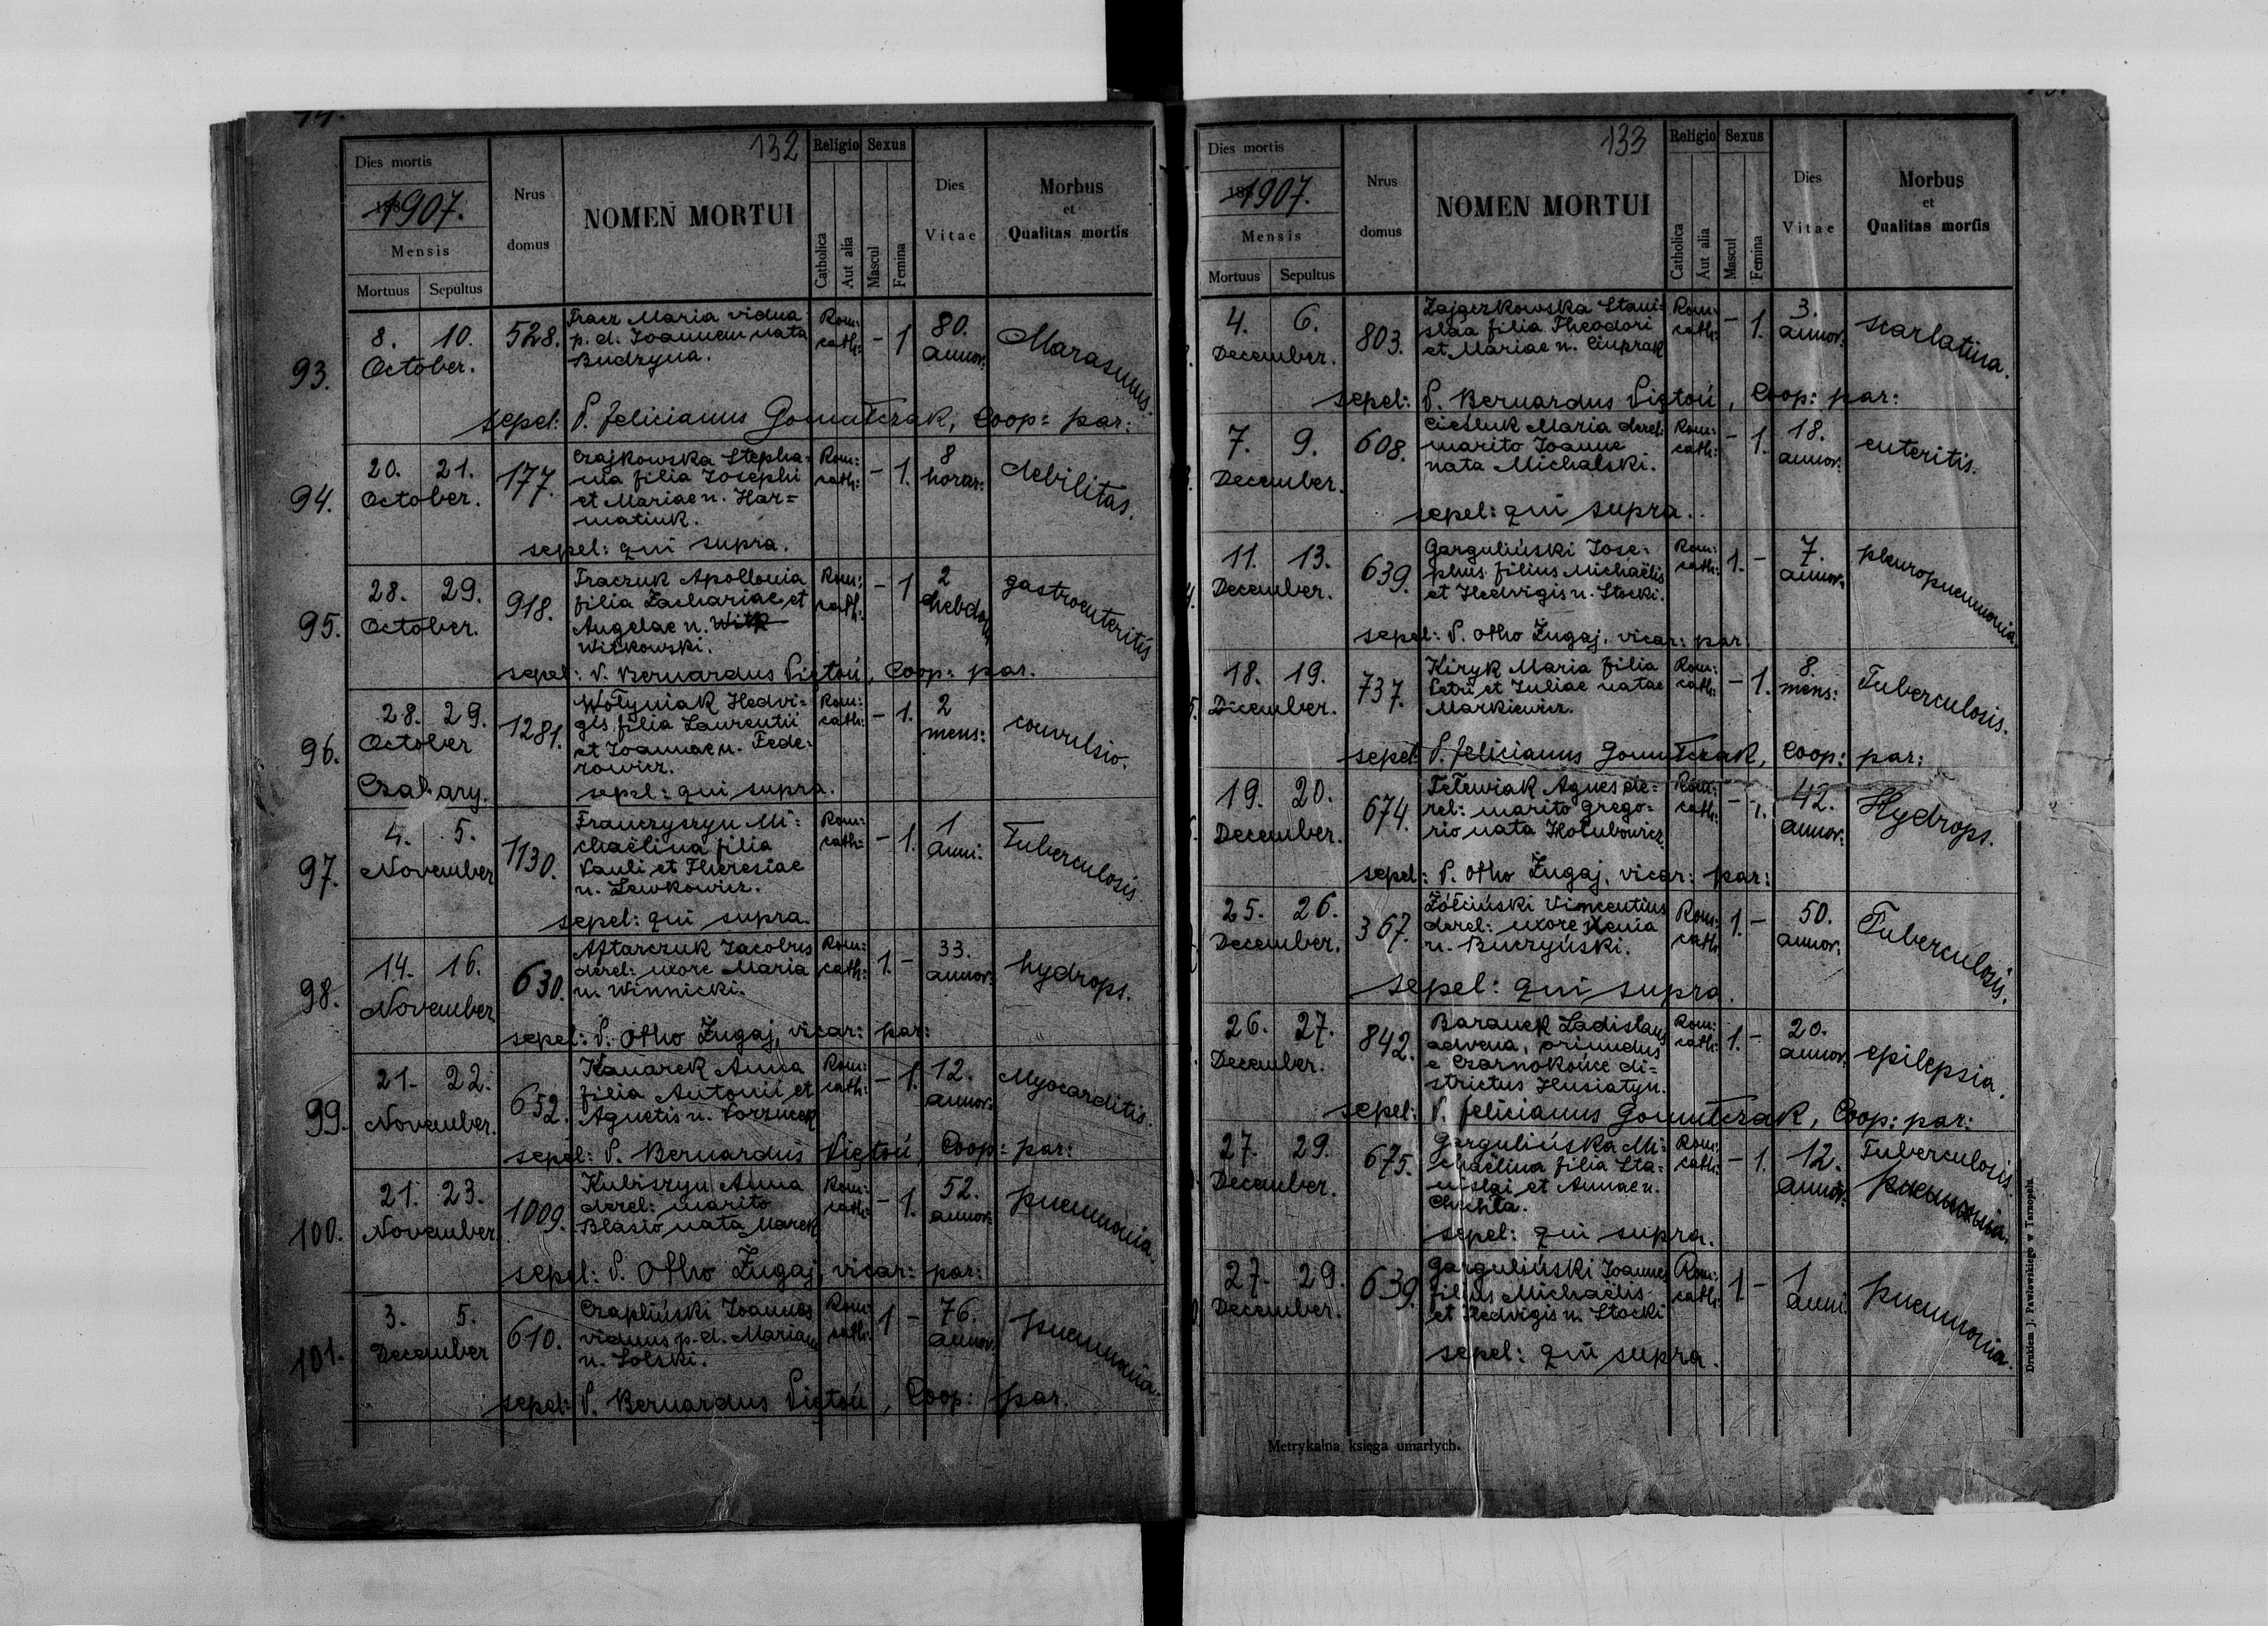 132
Dies mortis
1907.
Mensis
Mortuus Sepultus
Nrus domus
NOMEN MORTUI
Religio
Catholica
Aut alia
Sexus
Mascul
Femina
Dies Vitae
Morbus
et
Qualitas mortis
93. 8. 10. 528. Tracz Maria vidua Rom: - 1 80. Marasmus.
October. p. d. Joannem nata cath: annor:
Budzyna.
sepel: P. Felicianus Gomułczak, Coop: par:
94. 20. 21. 177. Czajkowska Stepha= Rom: - 1. 8 debilitas.
October. nia filia Josephi cath: horar:
et Mariae n. Har=
matiuk.
sepel: qui supra.
95. 28. 29. 918. Traczuk Apollonia Rom: - 1 2 gastroenteritis
October. filia Zachariae et cath: hebdom
Angelae n. Witk
Witkowski.
sepel: P. Bernardus Piętoń, Coop: par.
96. 28. 29. 1281. Wołyniak Hedvi= Rom: - 1. 2 convulsio.
October gis filia Laurentii cath: mens:
et Joannae n. Fede=
rowicz.
Czahary. sepel: qui supra.
97. 4. 5. 1130. Franczyszyn Mi= Rom: - 1. 1 Tuberculosis.
November chaëlina filia cath: anni:
Pauli et Theresiae
n. Lewkowicz.
sepel: qui supra.
98. 14. 16. 630. Aftarczuk Jacobus Rom: 1. - 33. hydrops.
November derel: uxore Maria cath: annor:
n. Winnicki.
sepel: P. Otho Żugaj, vicar: par:
99. 21. 22. 652. Kanarek Anna Rom: - 1. 12. Myocarditis.
November. filia Antonii et cath: annor:
Agnetis n.
sepel: P. Bernardus Piętoń, Coop: par:
100. 21. 23. 1009. Kubiszyn Anna Rom: - 1. 52. pneumonia.
November derel: marito cath: annor:
Blasio nata Marek
sepel: P. Otho Żugaj, vicar: par:
101. 3. 5. 610. Czapliński Joannes Rom: 1 - 76. pneumonia.
December viduus p. d. Mariam cath: annor:
n. Solski.
sepel: P. Bernardus Piętoń, Coop: par.
133
Dies mortis
1907.
Mensis
Mortuus Sepultus
Nrus domus
NOMEN MORTUI
Religio
Catholica
Aut alia
Sexus
Mascul
Femina
Dies Vitae
Morbus
et
Qualitas mortis
4. 6. 803. Zajączkowska Stani= Rom: - 1. 3. scarlatina.
December. slaa filia Theodori cath: annor:
et Mariae n. Ciuprak
sepel: P. Bernardus Piętoń, Coop: par:
7. 9. 608. Cieśluk Maria derel: Rom: - 1. 18. enteritis.
December. marito Joanne cath: annor:
nata Michalski.
sepel: qui supra.
11. 13. 639. Garguliński Jose= Rom: 1. - 7. pleuropneumonia
December. phus filius Michaëlis cath: annor:
et Hedvigis n. Stocki.
sepel: P. Otho Żugaj, vicar: par
18. 19. 737. Kiryk Maria filia Rom: - 1. 8. Tuberculosis.
December. Petri et Juliae natae cath: mens:
Markiewicz.
sepel: P. Felicianus Gomułczak, Coop: par:
19. 20. 674. Telewiak Agnes de= Rom: - 1. 42. Hydrops.
December. rel: marito Grego= cath: annor:
rio nata Hołubowicz
sepel: P. Otho Żugaj, vicar: par:
25. 26. 367. Żółciński Vincentius Rom: 1. - 50. Tuberculosis.
December. derel: uxore Xenia cath: annor:
n. Buczyński.
sepel: qui supra.
26. 27. 842. Baranek Ladislaus Rom: 1. - 20. epilepsia.
December. advena, oriundus cath: annor:
e Czarnokońce di=
strictus Husiatyn.
sepel: P. Felicianus Gomułczak, Coop: par:
27. 29. 675. Gargulińska Mi= Rom: - 1. 12. Tuberculosis.
December. chaëlina filia Sta= cath: annor: pneumonia.
nislai et Annae n.
Chichła.
sepel: qui supra.
27. 29. 639. Garguliński Joannes Rom: 1. - 1 pneumonia.
December. filius Michaëlis cath: anni
et Hedvigis n. Stocki
sepel: qui supra.
Metrykalna księga umarłych.
Drukiem J. Pawłowskiego w Tarnopolu.